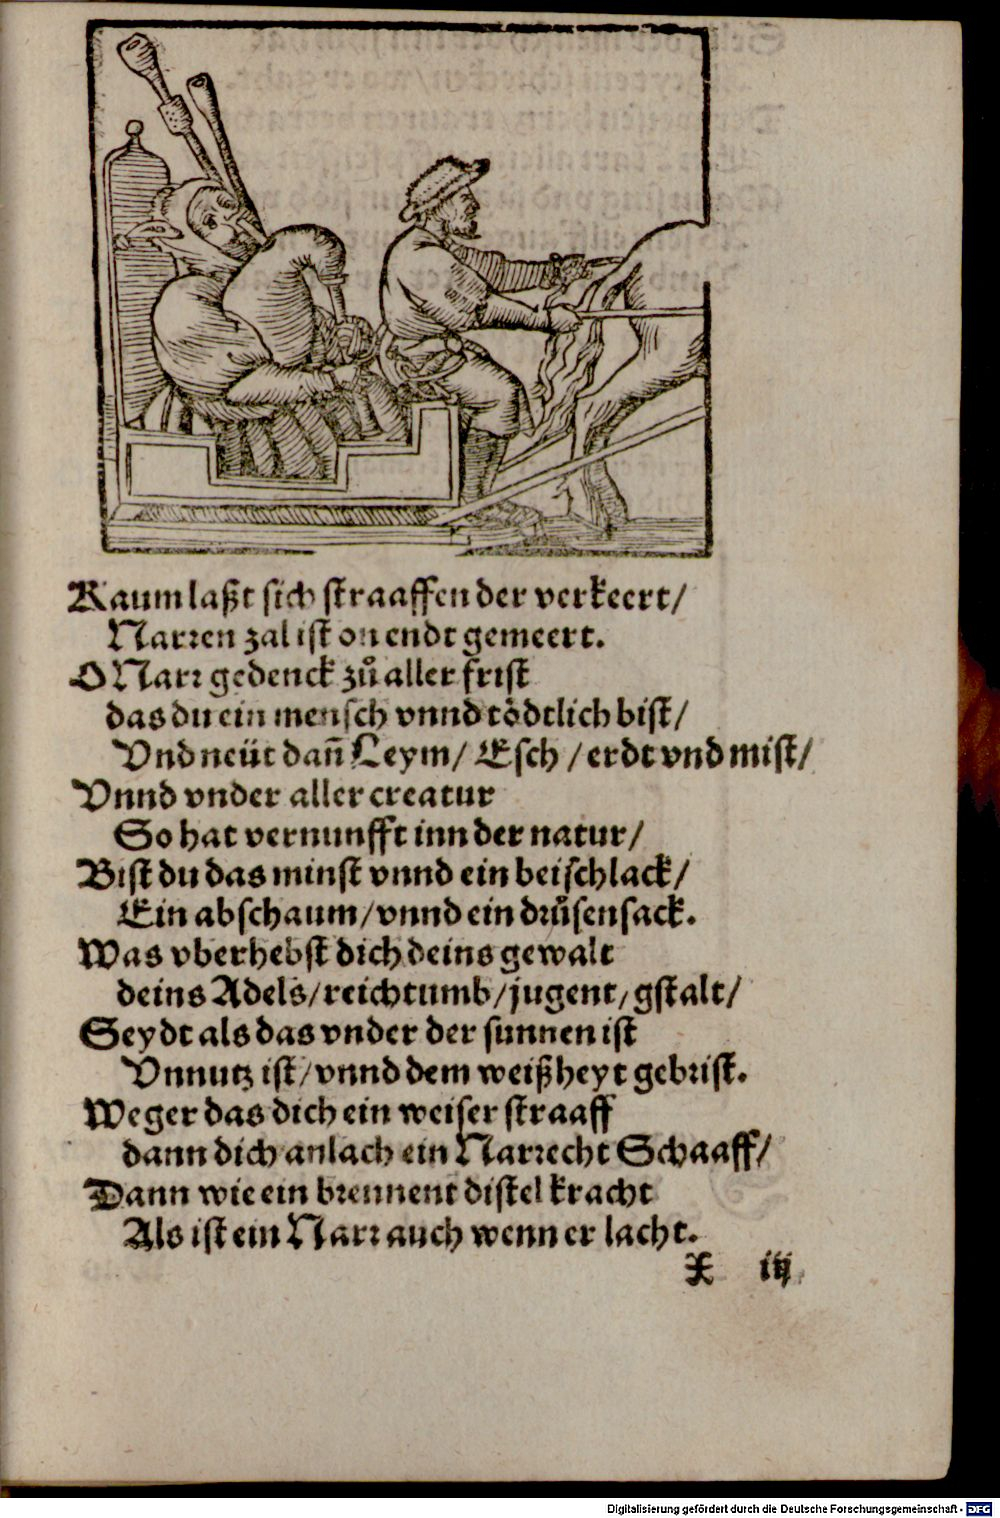 Kaum laßt sich straaffen der verkeert/
Narren zal ist on endt gemeert.
O Narr gedenck zuͦ aller frist
das du ein mensch vnnd toͤdtlich bist/
Vnd neüt dañ Leym/ Esch / erdt vnd mist/
Vnnd vnder aller creatur
So hat vernunfft inn der natur/
Bist du das minst vnnd ein beischlack/
Ein abschaum/vnnd ein druͤsensack.
Was vberhebst dich deins gewalt
deins Adels/reichtumb/jugent/gstalt/
Seydt als das vnder der sunnen ist
Vnnutz ist/vnnd dem weißheyt gebrist.
Weger das dich ein weiser straaff
dann dich anlach ein Narrecht Schaaff/
Dann wie ein brennent distel kracht
Als ist ein Narr auch wenn er lacht.
X iij
Digitalisierung gefördert durch die Deutsche Forschungsgemeinschaft - DFG